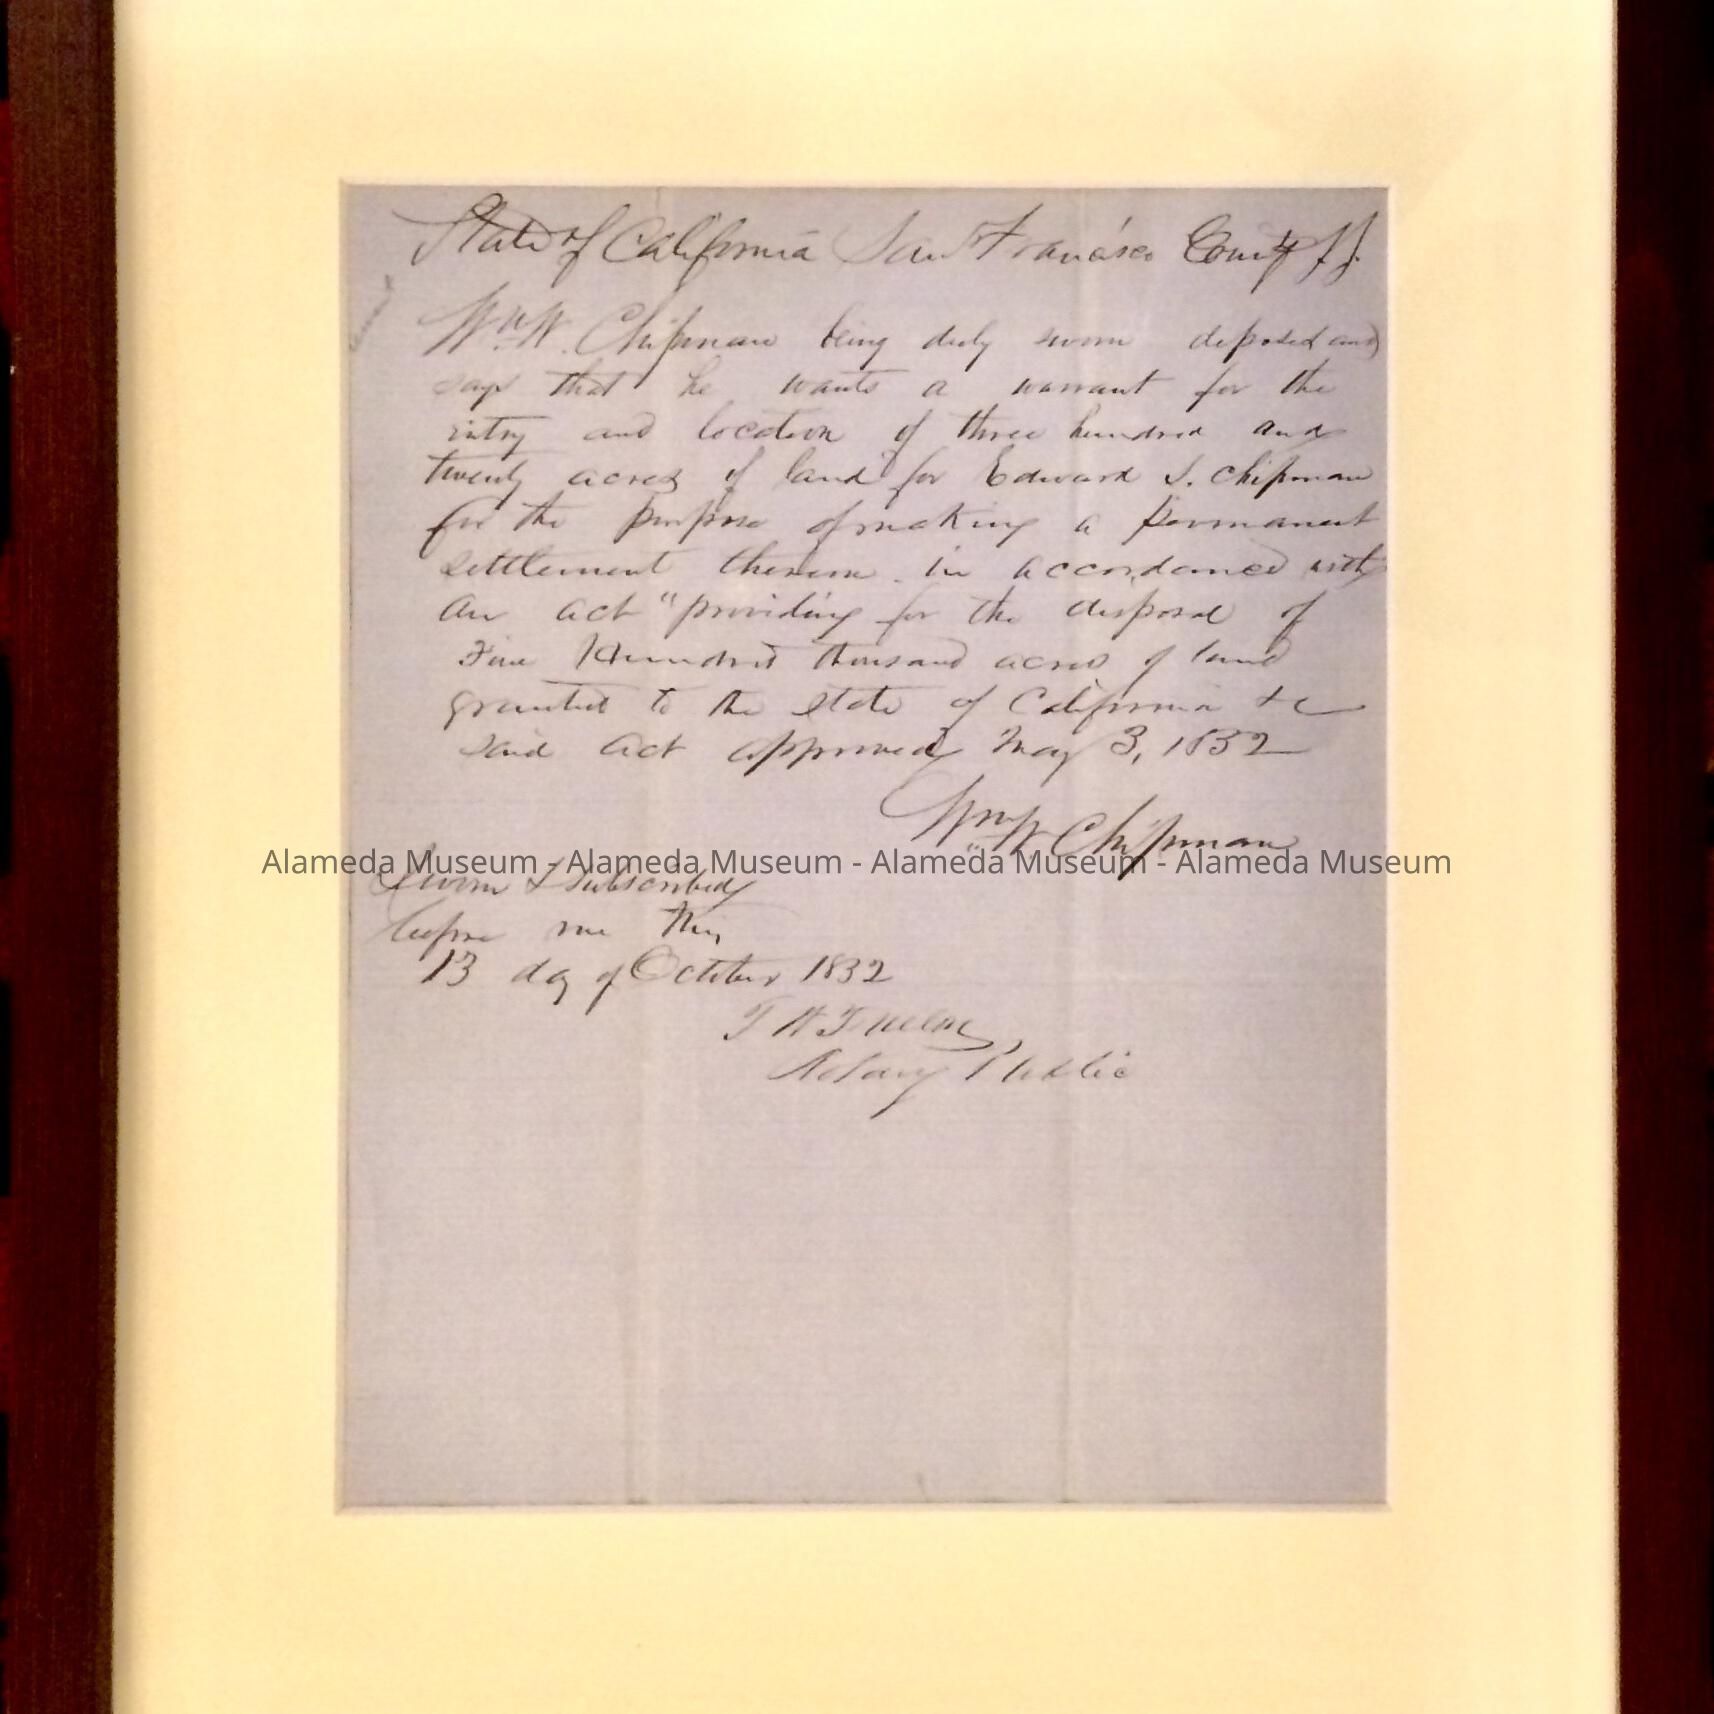 State of California San Francisco County SS.
Wm. W. Chipman being duly sworn deposed and
says that he wants a warrant for the
entry and location of three hundred and
twenty acres of land for Edward S. Chipman
for the purpose of making a permanent
settlement thereon in accordance with
an act "providing for the disposal of
Five Hundred thousand acres of land
granted to the state of California &c
said act approved May 3, 1852
Wm W Chipman
Alameda Museum - Alameda Museum - Alameda Museum - Alameda Museum
Sworn & subscribed
before me this
13 day of October 1852
Notary Public